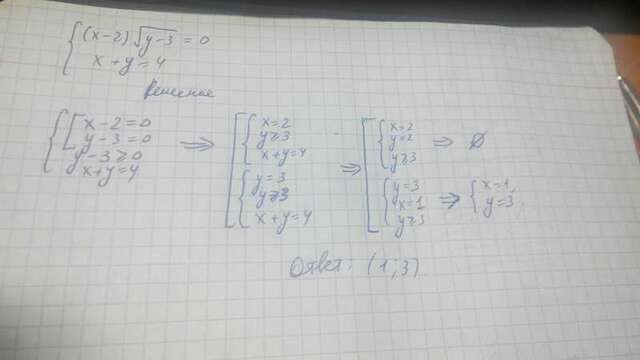 (x-2)√(y-3) = 0
x+y=4
Решение
x-2=0
y-3=0
y-3≥0
x+y=4
⇒
x=2
y≥3
x+y=4
y=3
y≥3
x+y=4
⇒
x=2
y=2
y≥3
⇒ ∅
y=3
x=1
y≥3
⇒
x=1,
y=3.
Ответ: (1;3)